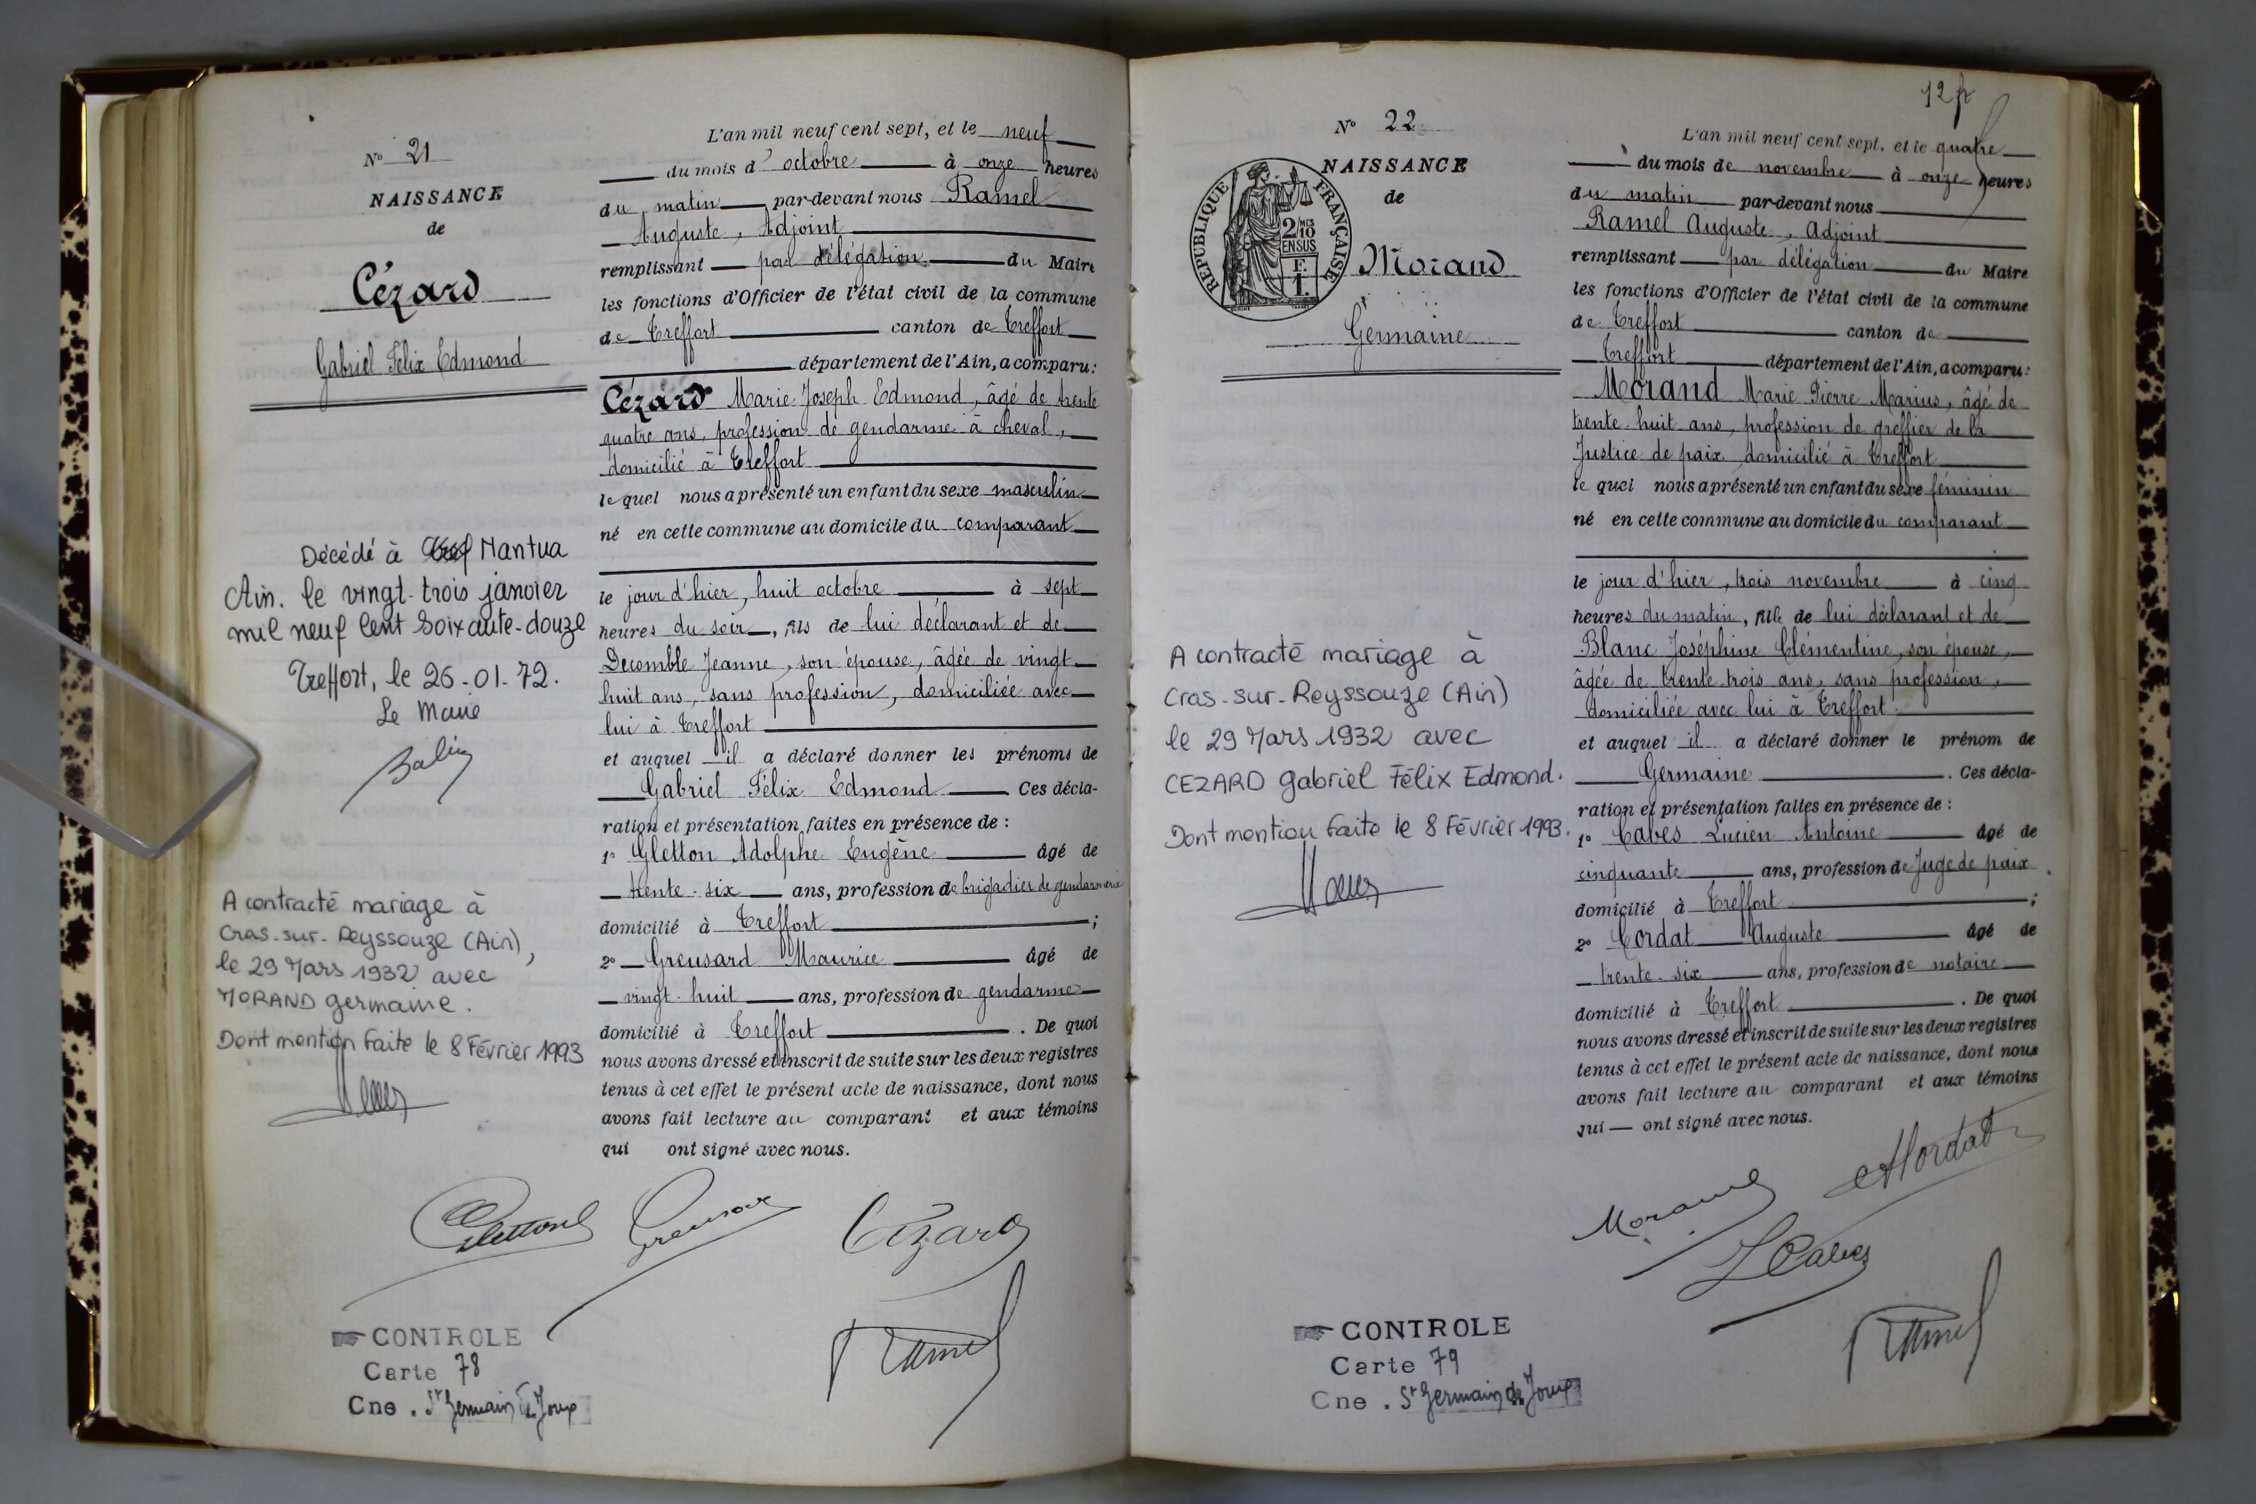 N° 21
NAISSANCE
de
Cézard
Gabriel Félix Edmond
Décédé à Nantua
Ain. le vingt-trois janvier
mil neuf cent soixante-douze
Treffort, le 26-01-72.
Le Maire
A contracté mariage à
Cras-sur-Reyssouze (Ain),
le 29 Mars 1932 avec
MORAND germaine.
Dont mention faite le 8 Février 1993
L'an mil neuf cent sept, et le neuf
du mois d'octobre à onze heures
du matin par-devant nous Ramel
Auguste, Adjoint
remplissant par délégation du Maire
les fonctions d'Officier de l'état civil de la commune
de Treffort canton de Treffort
département de l'Ain, a comparu:
Cézard Marie Joseph Edmond, âgé de trente
quatre ans, profession de gendarme à cheval,
domicilié à Treffort
lequel nous a présenté un enfant du sexe masculin
né en cette commune au domicile du comparant
le jour d'hier, huit octobre à sept
heures du soir, fils de lui déclarant et de
Decomble Jeanne, son épouse, âgée de vingt
huit ans, sans profession, domiciliée avec
lui à Treffort
et auquel il a déclaré donner les prénoms de
Gabriel Félix Edmond Ces décla-
ration et présentation faites en présence de :
1° Gletton Adolphe Eugène âgé de
trente-six ans, profession de brigadier de gendarmerie
domicilié à Treffort ;
2° Greusard Maurice âgé de
vingt-huit ans, profession de gendarme
domicilié à Treffort . De quoi
nous avons dressé et inscrit de suite sur les deux registres
tenus à cet effet le présent acte de naissance, dont nous
avons fait lecture au comparant et aux témoins
qui ont signé avec nous.
Gletton Greusard Cézard
Ramel
CONTROLE
Carte 78
Cne . St Germain de Joux
12 f
N° 22
NAISSANCE
de
REPUBLIQUE FRANÇAISE
2/10 EN SUS
Morand
Germaine
A contracté mariage à
Cras-sur-Reyssouze (Ain)
le 29 Mars 1932 avec
CEZARD gabriel Félix Edmond.
Dont mention faite le 8 Février 1993.
L'an mil neuf cent sept, et le quatre
du mois de novembre à onze heures
du matin par-devant nous
Ramel Auguste, Adjoint
remplissant par délégation du Maire
les fonctions d'Officier de l'état civil de la commune
de Treffort canton de
Treffort département de l'Ain, a comparu:
Morand Marie Pierre Marius, âgé de
trente-huit ans, profession de greffier de la
Justice de paix domicilié à Treffort
lequel nous a présenté un enfant du sexe féminin
né en cette commune au domicile du comparant
le jour d'hier, trois novembre à cinq
heures du matin, fille de lui déclarant et de
Blanc Joséphine Clémentine, son épouse,
âgée de trente trois ans, sans profession,
domiciliée avec lui à Treffort.
et auquel il a déclaré donner le prénom de
Germaine . Ces décla-
ration et présentation faites en présence de :
1° Cabes Lucien Antoine âgé de
cinquante ans, profession de Juge de paix
domicilié à Treffort ;
2° Cordat Auguste âgé de
trente-six ans, profession de notaire
domicilié à Treffort . De quoi
nous avons dressé et inscrit de suite sur les deux registres
tenus à cet effet le présent acte de naissance, dont nous
avons fait lecture au comparant et aux témoins
qui ont signé avec nous.
Morand
L Cabes
Ramel
CONTROLE
Carte 79
Cne . St Germain de Joux